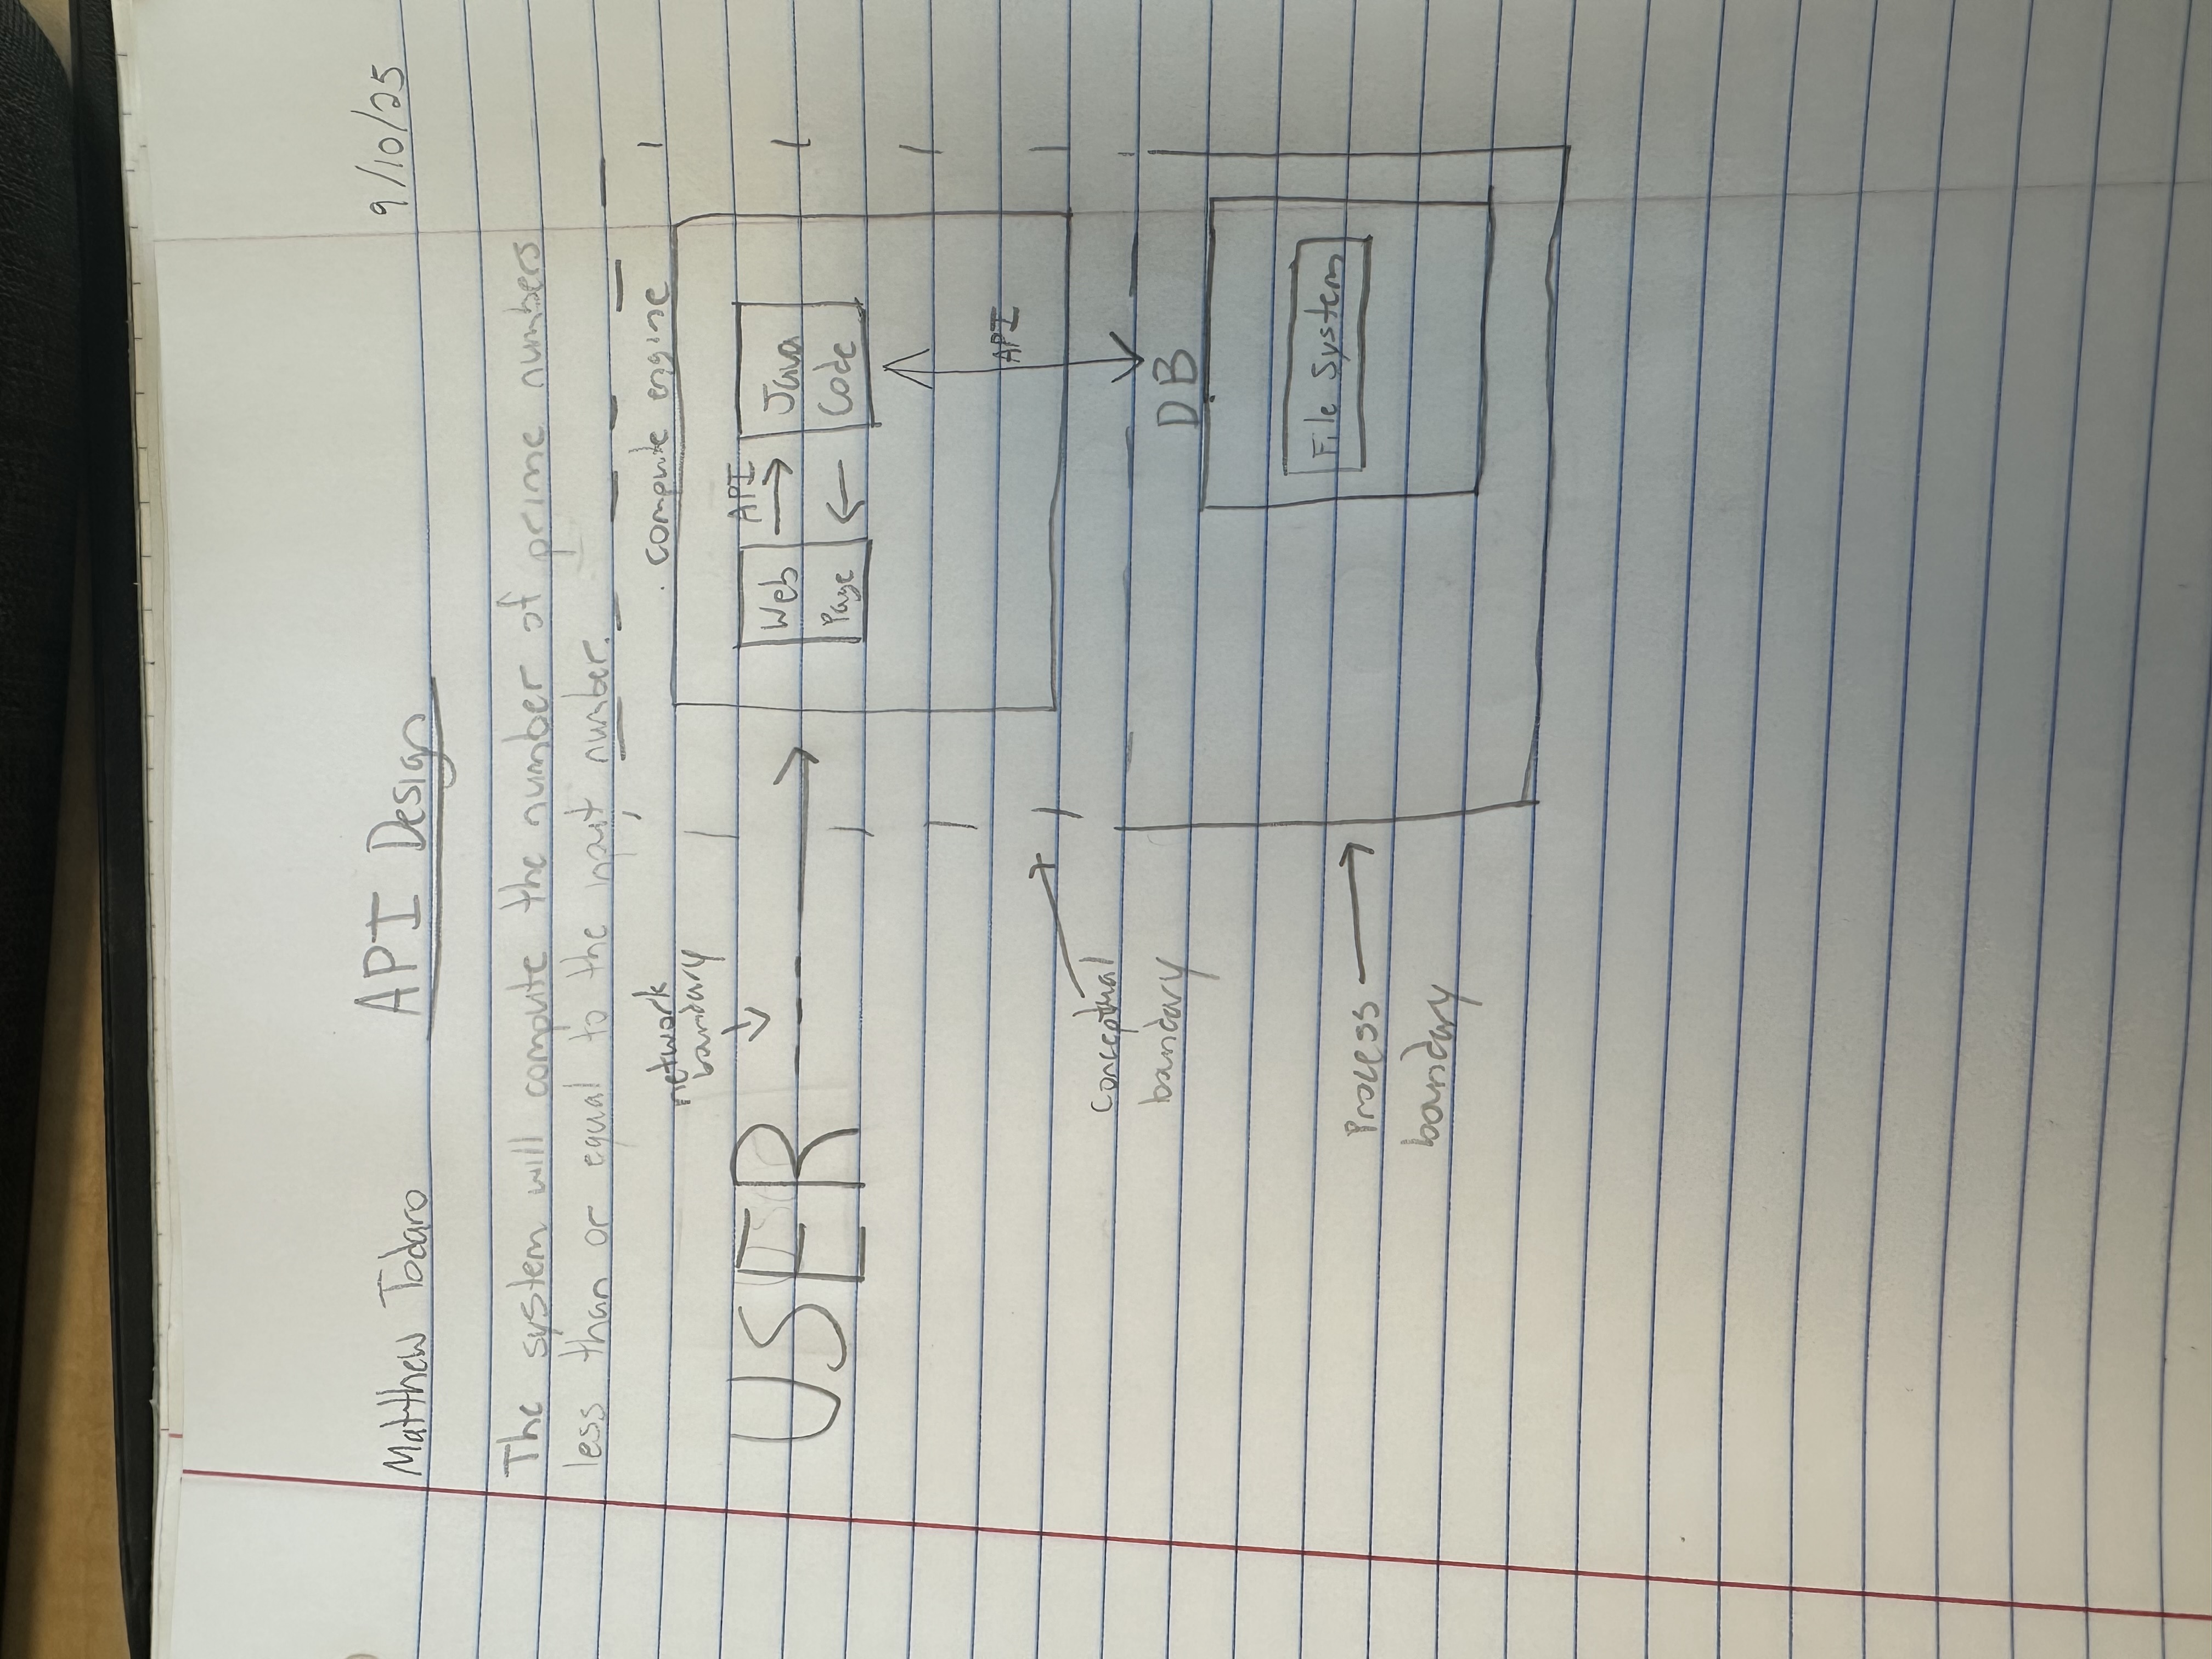 Matthew Todaro API Design 9/10/25
The system will compute the number of prime numbers
less than or equal to the input number.
network
boundary
compute engine
USER
API
Web
Page
Java
Code
API
Conceptual
boundary
DB
File System
Process
boundary